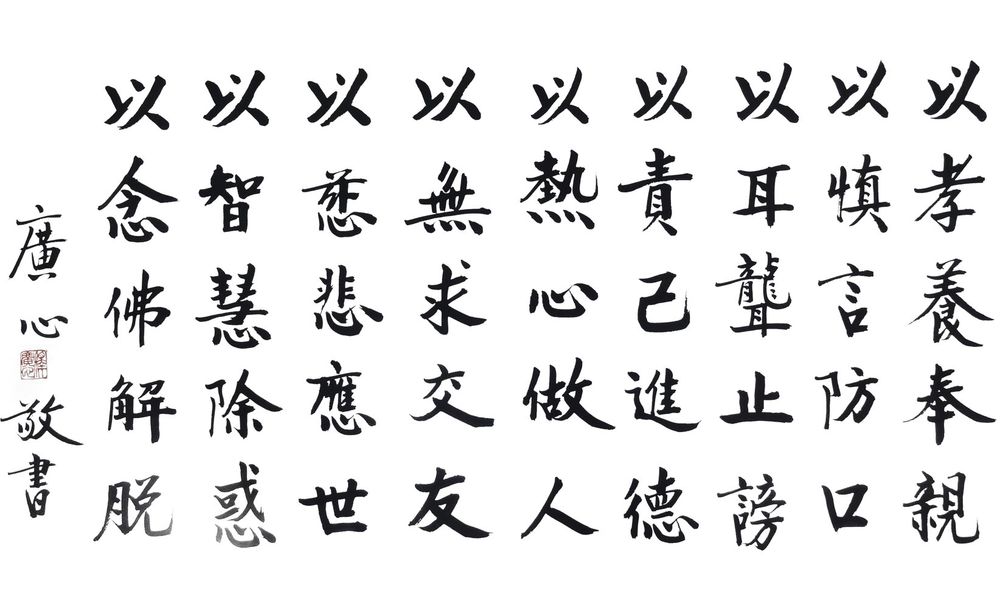 以孝養奉親
以慎言防口
以耳聾止謗
以責己進德
以熱心做人
以無求交友
以慈悲應世
以智慧除惑
以念佛解脱
廣心敬書